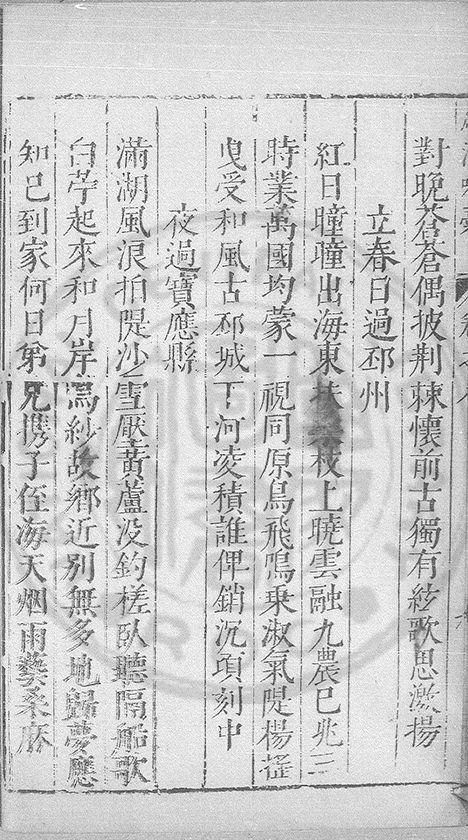 對晚蒼蒼偶披荆棘懷前古獨有絃歌思激揚
立春日過邳州
紅日曈曈出海東扶桑枝上曉雲融九農巳兆三
時業萬國均蒙一視同原鳥飛鳴乗淑氣隄楊搖
曳受和風古邳城下河凌積誰俾銷沉頃刻中
夜過寶應縣
滿湖風浪拍隄沙雪壓黃蘆没釣槎臥聽隔船歌
白苧起來和月岸烏紗故鄉近别無多地歸夢應
知巳到家何日第兄携子侄海天烟雨藝桑麻